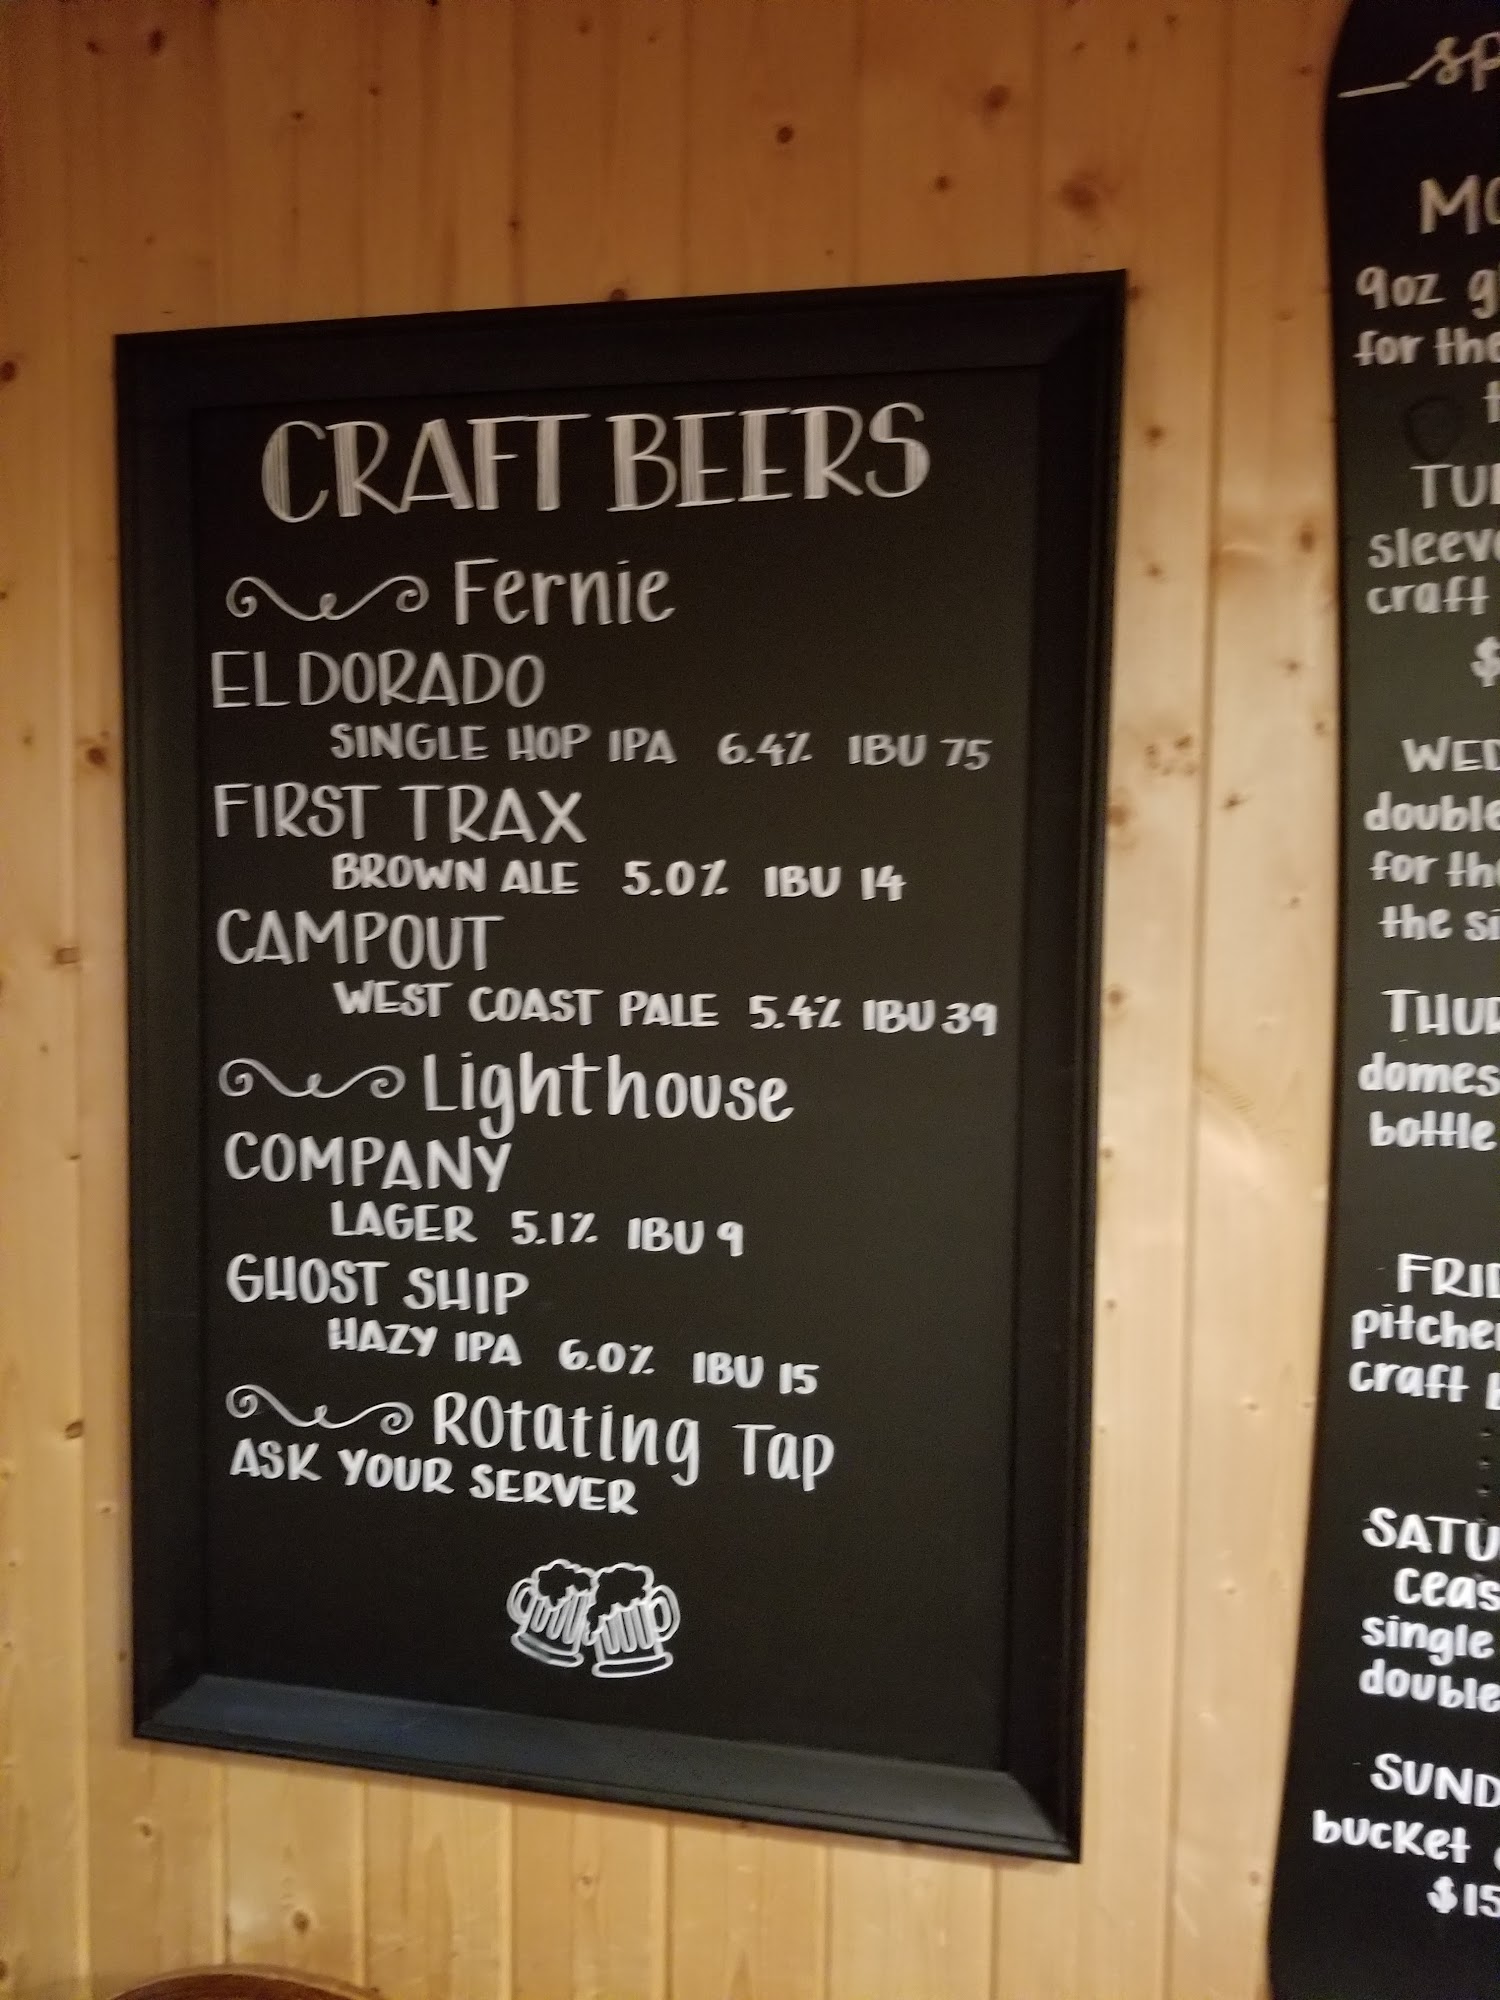 CRAFT BEERS
Fernie
EL DORADO
SINGLE HOP IPA 6.4% IBU 75
FIRST TRAX
BROWN ALE 5.0% IBU 14
CAMPOUT
WEST COAST PALE 5.4% IBU 39
Lighthouse
COMPANY
LAGER 5.1% IBU 9
GHOST SHIP
HAZY IPA 6.0% IBU 15
ROtating Tap
ASK YOUR SERVER
9oz
for the
craft
$
double
for the
the
bottle
craft
single
double
bucket
$15